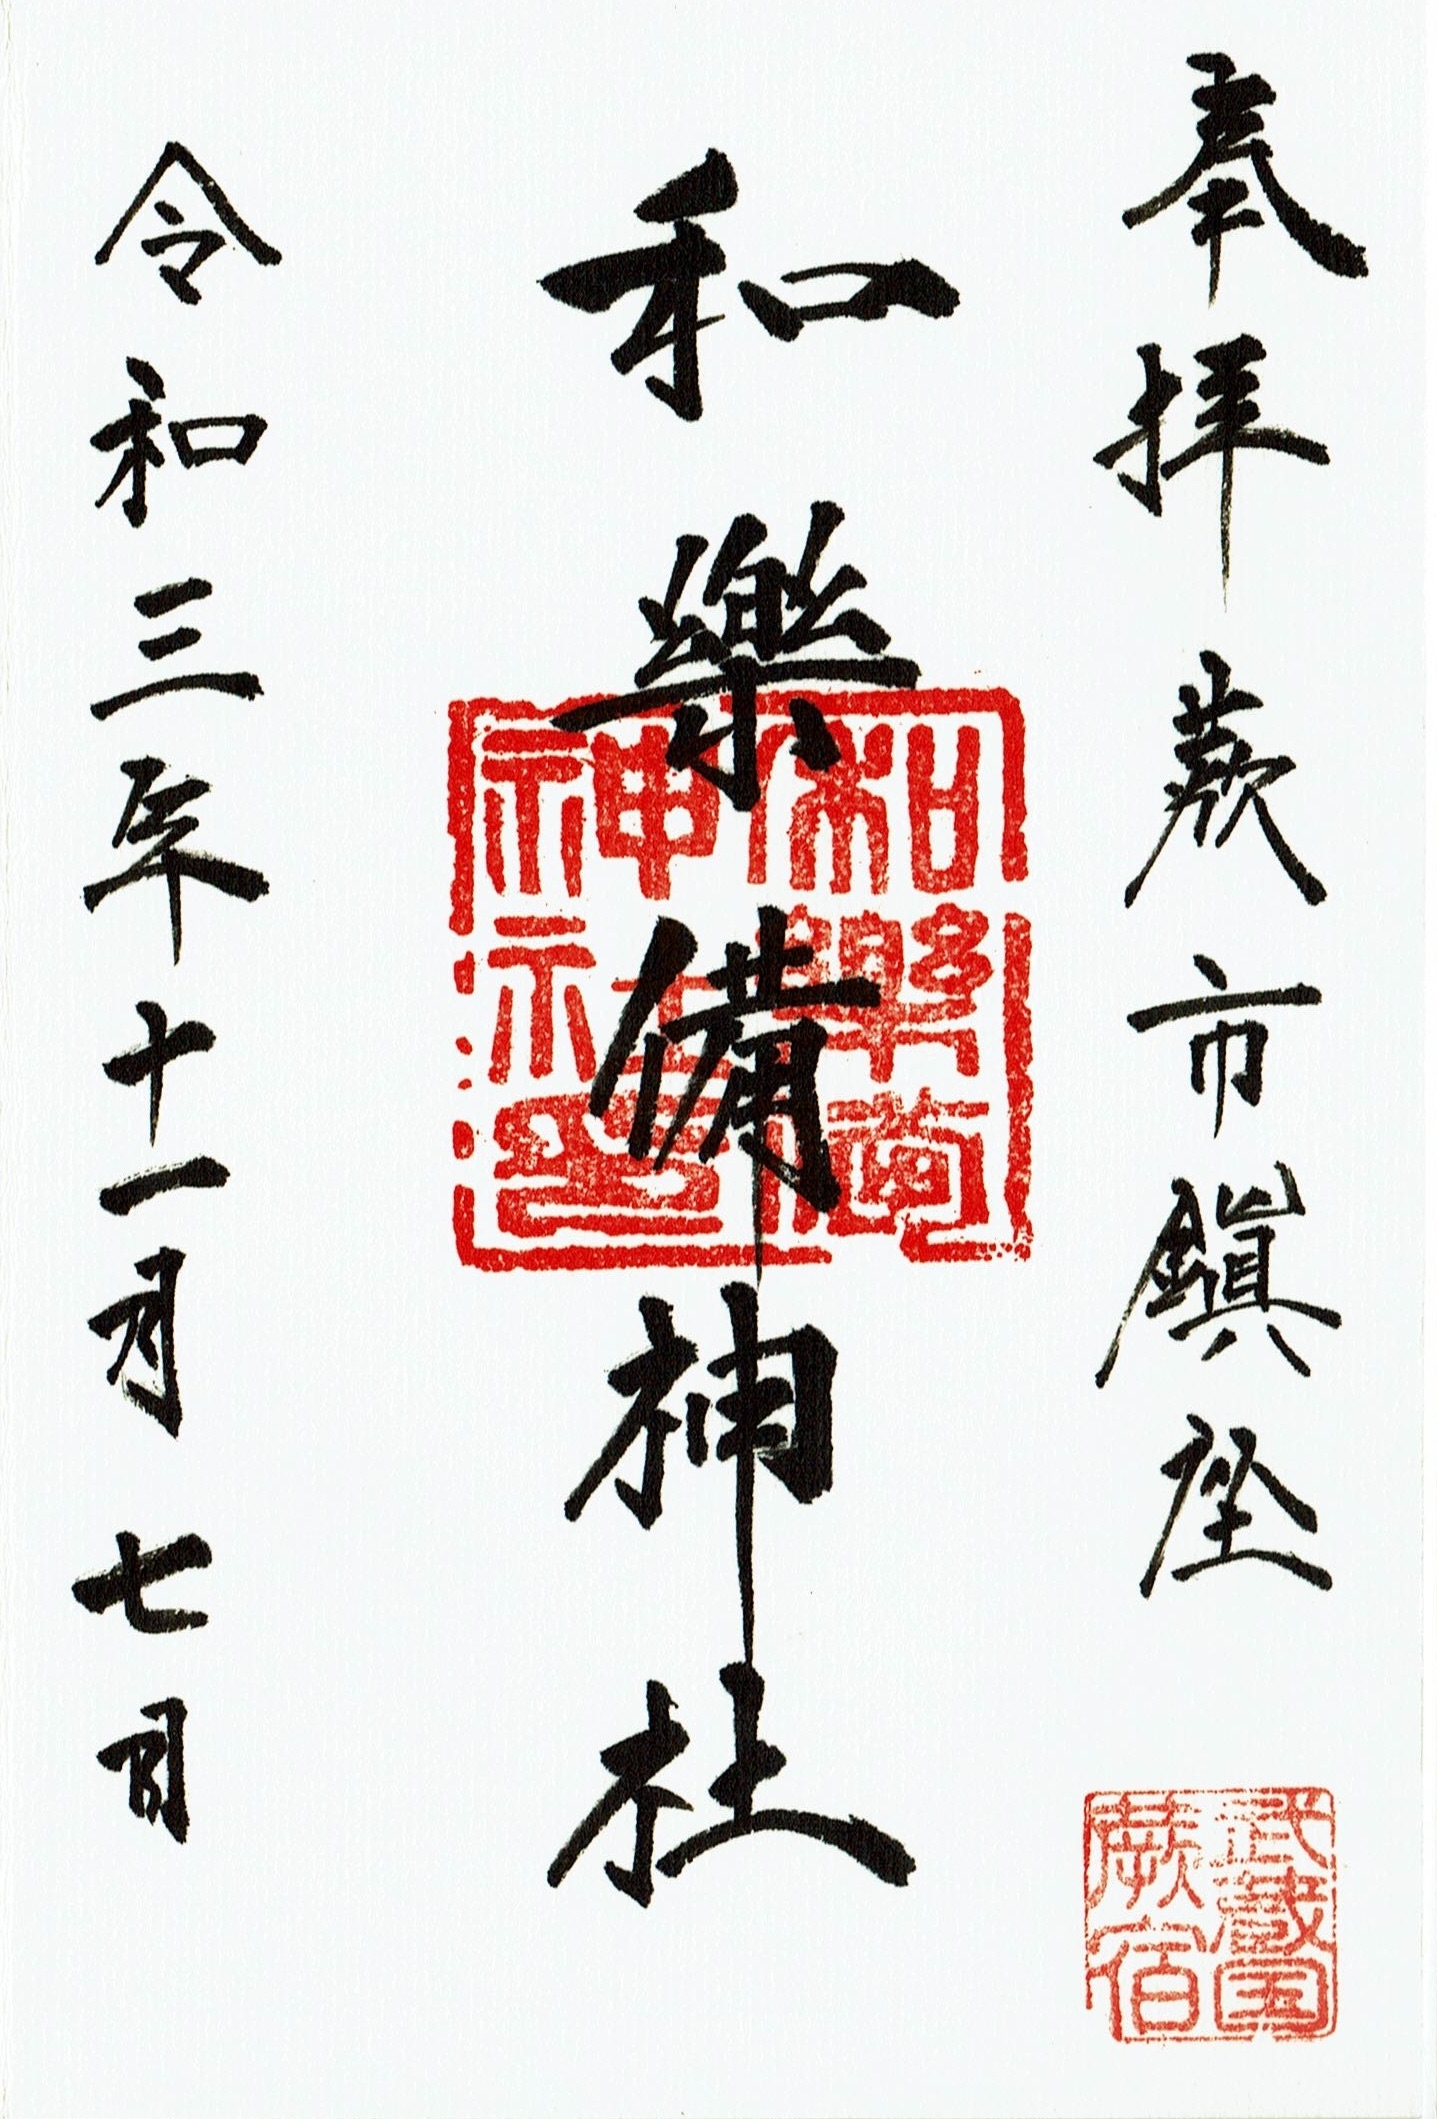 奉拝 蕨市鎮座
武蔵国
蕨宿
和樂備神社
和樂備
神社印
令和三年十一月七日